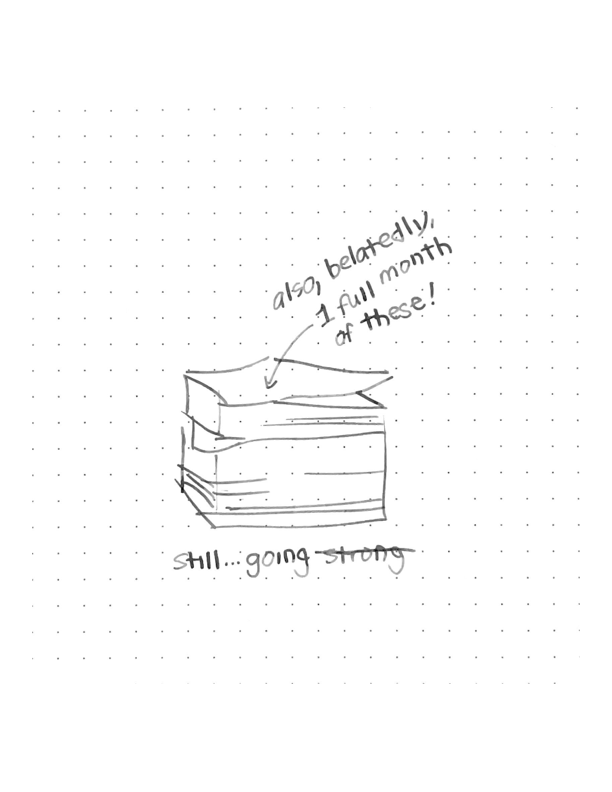 also, belatedly,
1 full month
of these!
still... going strong